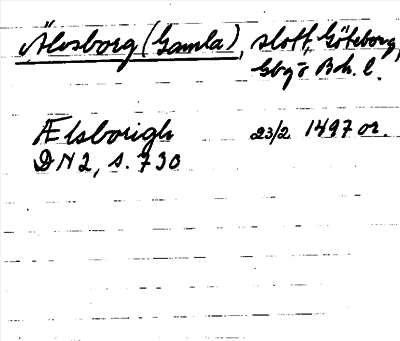 Älvsborg (Gamla), slott, Göteborg,
Gbg o Boh. l.
Ælsborigh 23/2 1497 or.
DN 2, s. 730